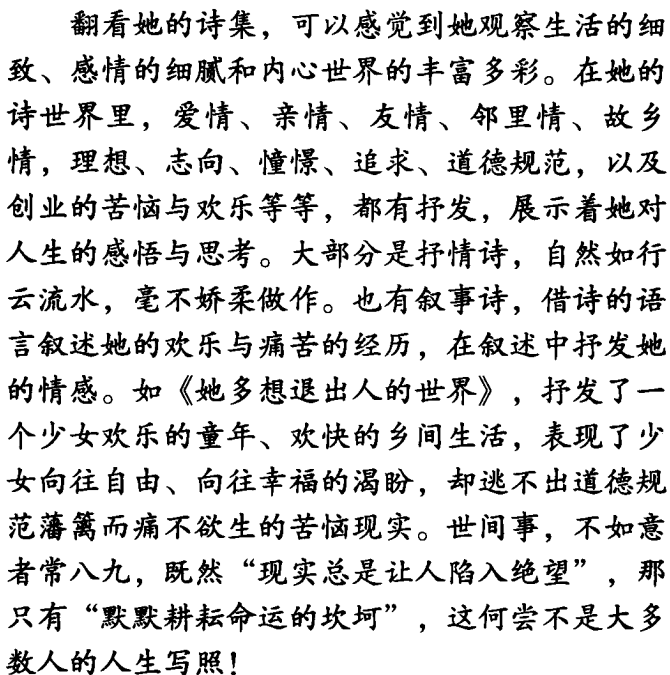 翻看她的诗集，可以感觉到她观察生活的细
致、感情的细腻和内心世界的丰富多彩。在她的
诗世界里，爱情、亲情、友情、邻里情、故乡
情，理想、志向、憧憬、追求、道德规范，以及
创业的苦恼与欢乐等等，都有抒发，展示着她对
人生的感悟与思考。大部分是抒情诗，自然如行
云流水，毫不娇柔做作。也有叙事诗，借诗的语
言叙述她的欢乐与痛苦的经历，在叙述中抒发她
的情感。如《她多想退出人的世界》，抒发了一
个少女欢乐的童年、欢快的乡间生活，表现了少
女向往自由、向往幸福的渴盼，却逃不出道德规
范藩篱而痛不欲生的苦恼现实。世间事，不如意
者常八九，既然“现实总是让人陷入绝望”，那
只有“默默耕耘命运的坎坷”，这何尝不是大多
数人的人生写照！